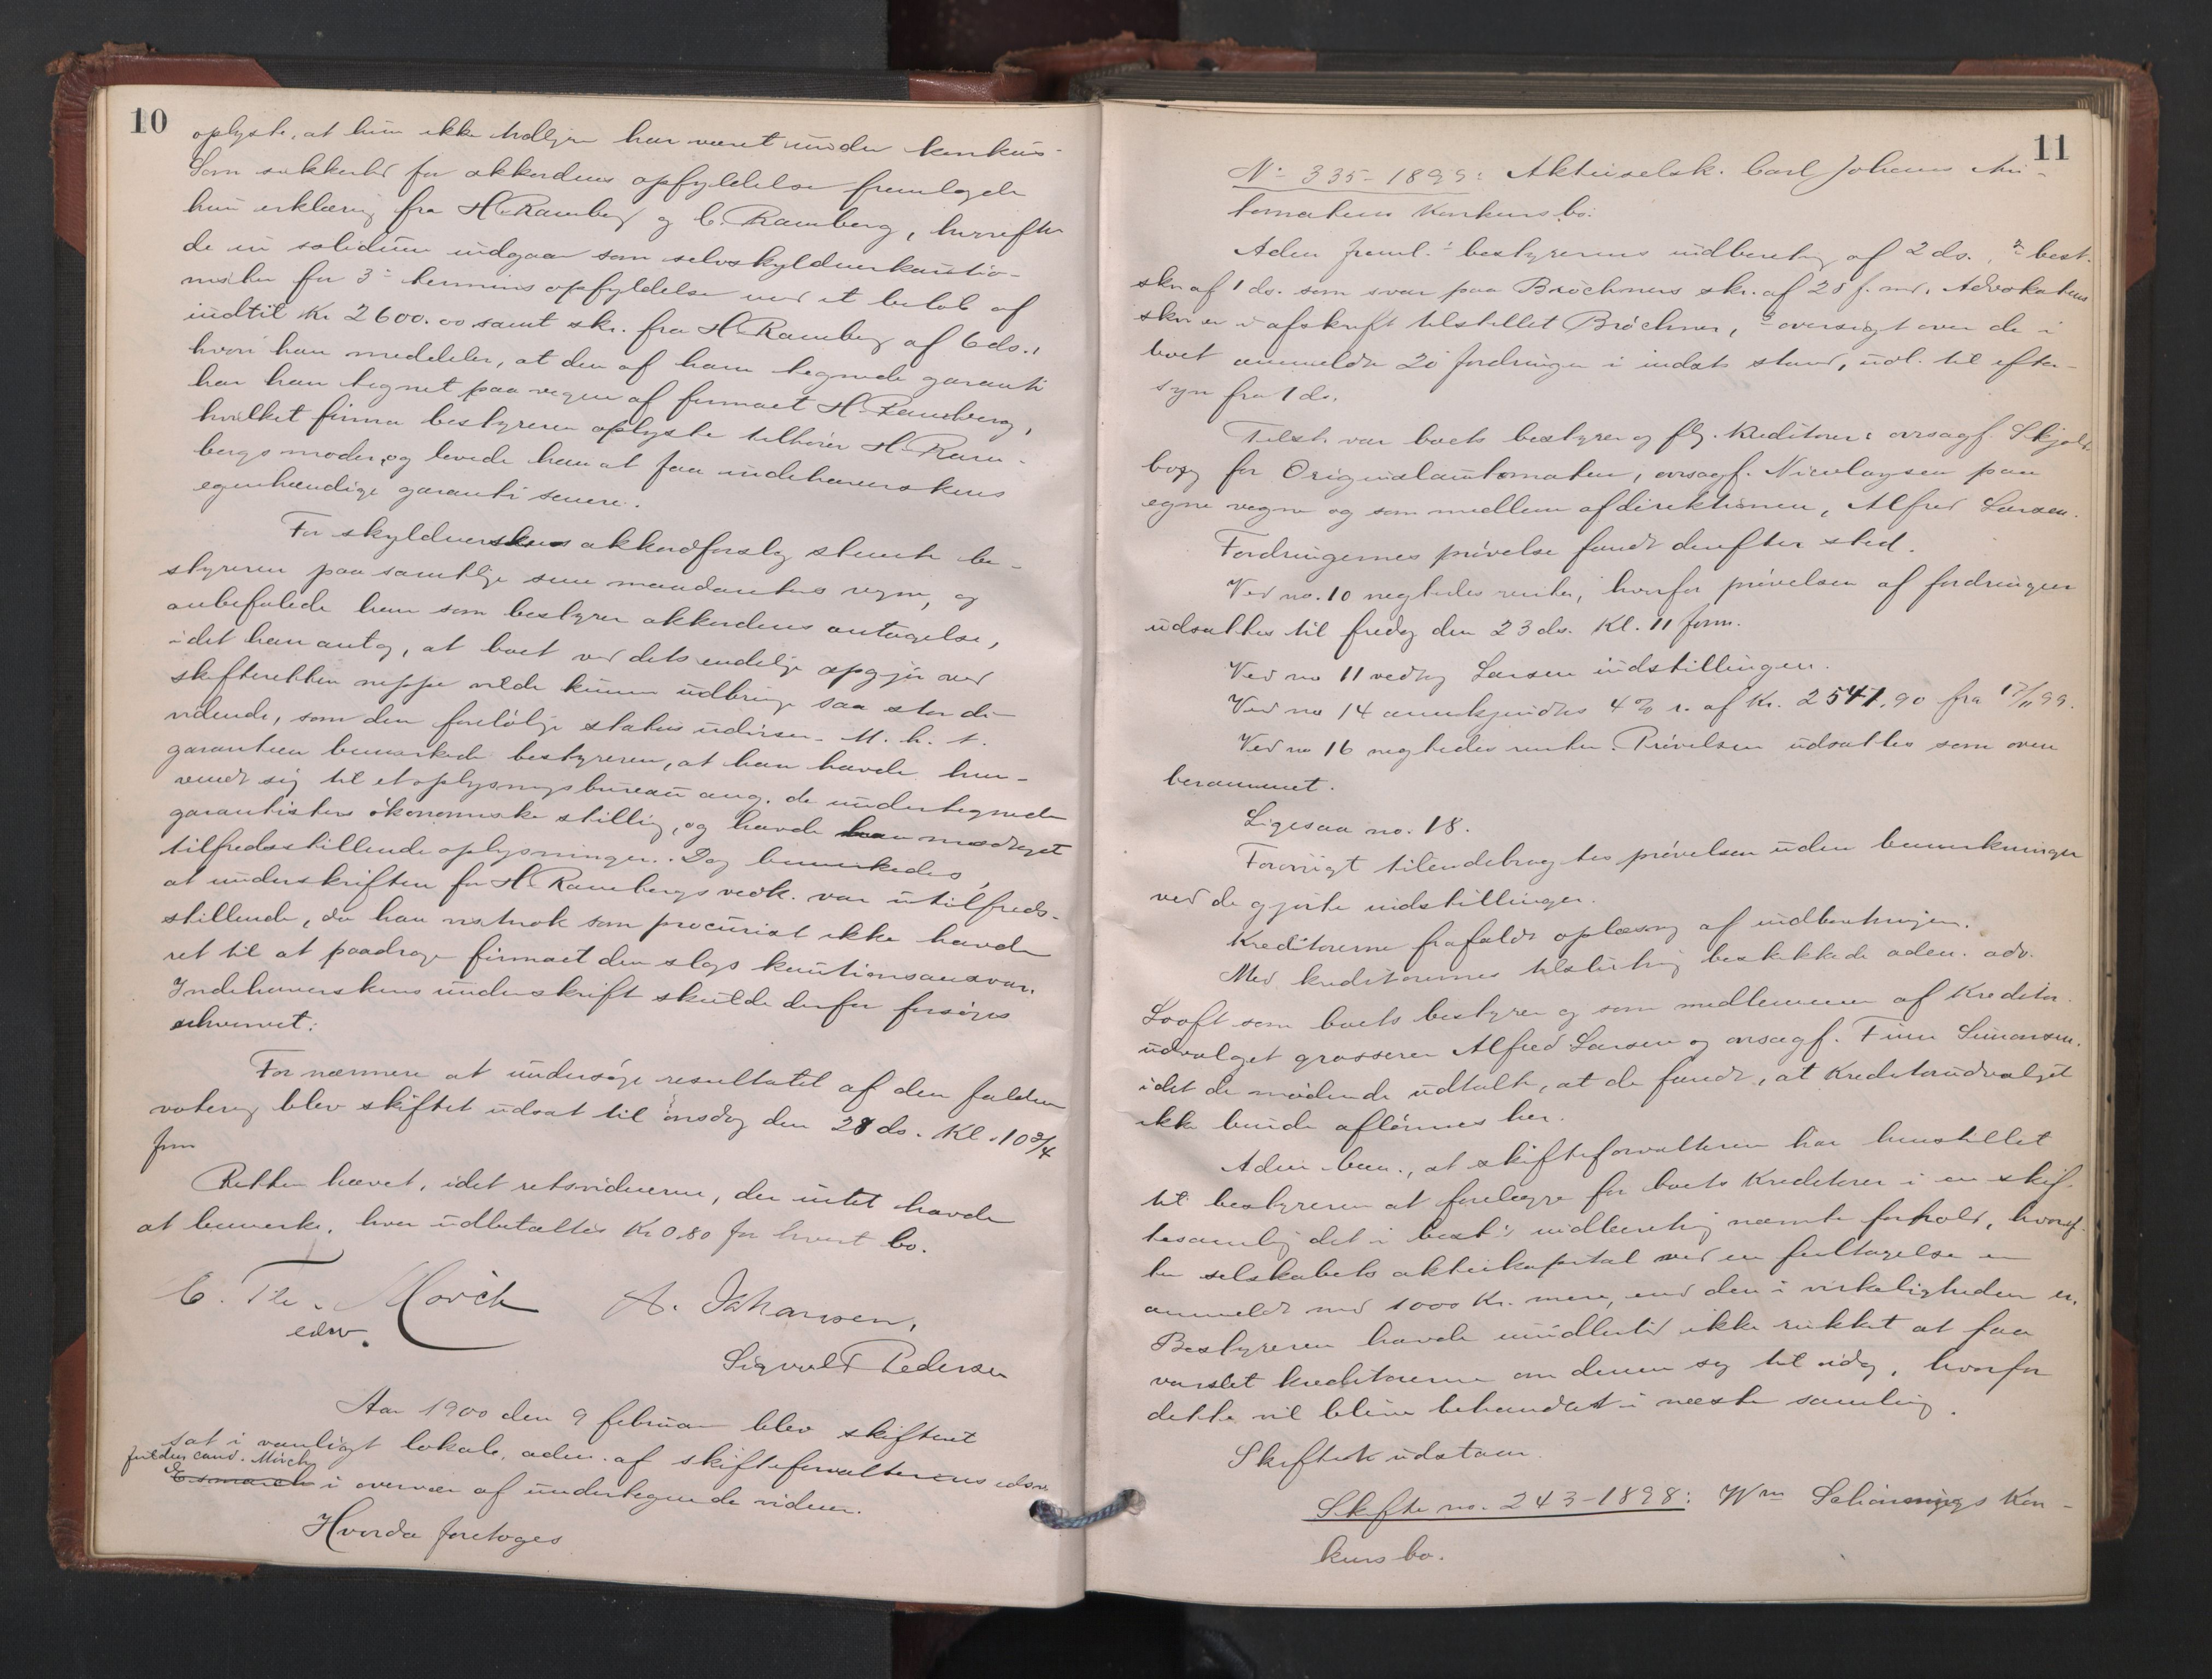 10
oplyste, at hun ikke tidligere har været under konkurs.
Som sikkerhed for akkordens opfyldelse fremlagde
hun erklæring fra H. Ramberg og C. Ramberg, hvorefter
de in solidum indgaar som selvskyldnerkautio-
nister for 3die termins opfyldelse med et beløb af
indtil Kr. 2600.00 samt skr. fra H. Ramberg af 6 ds.,
hvori han meddeler, at den af ham tegnede garanti
har han tegnet paa vegne af firmaet H. Ramberg,
hvilket firma bestyreren oplyste tilhører H. Ram-
bergs moder, og lovede han at faa indehaverskens
egenhændige garanti senere.
For skyldnerskens akkordforslag stemte be-
styreren paa samtlige sine mandanters vegne, og
anbefalede han som bestyrer akkordens antagelse,
idet han antog, at boet ved dets endelige opgjør ved
skifteretten neppe vilde kunne udbringe saa stor di-
vidende, som den foreløbige status udviser. M. h. t.
garantien bemærkede bestyreren, at han havde hen-
vendt sig til et oplysningsbureau ang. de undertegnede
garantisters økonomiske stilling, og havde han modtaget
tilfredsstillende oplysninger. Dog bemærkedes,
at underskriften for H. Rambergs vedk. var utilfreds-
stillende, da han vistnok som procurist ikke havde
ret til at paadrage firmaet den slags kautionsansvar.
Indehaverskens underskrift skulde derfor forsøges
erhvervet.
For nærmere at undersøge resultatet af den faldne
votering blev skiftet udsat til onsdag den 28 ds. Kl. 10 3/4
form
Retten hævet, idet retsvidnerne, der intet havde
at bemerke, hver udbetaltes Kr 0.80 for hvert bo.
C. Th. Mørch A. Johansen,
edsv.
Sigvald Pedersen
Aar 1900 den 9 februar blev skifteret
sat i vanligt lokale, adm. af skifteforvalterens edsv.
fuldm. cand. Mørch
Esmarch i overvær af undertegnede vidner.
Hvorda foretoges
11
No 335-1899: Aktieselsk. Carl Johans Au-
tomatens Konkursbo:
Adm. freml. 1 bestyrerens indberetng af 2 ds., 2 best.
skr. af 1 ds. som svar paa Bröchners skr. af 28 f. md. Advokatens
skr er i afskrift tilstillet Bröchner, 3 oversigt over de i
boet anmeldte 20 fordringer i indst. stand, udl. til efter-
syn fra 1 ds.
Tilst. var boets bestyrer og flg. Kreditorer: ovrsagf. Skjold-
borg for Originalautomaten, ovrsagf. Nicolaysen paa
egne vegne og som medlem af direktionen, Alfred Larsen.
Fordringernes prøvelse fandt derefter sted.
Ved no. 10 negtedes renter, hvorfor prøvelsen af fordringen
udsattes til fredag den 23 ds. Kl. 11 form.
Ved no 11 vedtog Larsen indstillingen.
Ved no 14 anerkjendtes 4 % r. af Kr. 2541.90 fra 17/11 99.
Ved no 16 negtedes renter. Prøvelsen udsattes som oven
berammet.
Ligesaa no. 18.
Forøvrigt tilendebragtes prøvelsen uden bemerkninger
ved de gjorte indstillinger.
Kreditorerne frafaldt oplæsng af indberetningen.
Med kreditorernes tilslutning beskikkede adm. adv.
Looft som boets bestyrer og som medlemmer af Kreditor
udvalget grosserer Alfred Larsen og ovrsagf. Finn Simonsen.
idet de mødende udtalte, at de fandt, at Kreditorudvalget
ikke burde aflønnes her.
Adm. bem., at skifteforvalteren har henstillet
til bestyreren at forelægge for boets Kreditorer i en skif-
tesamlig det i best's indberetng nævnte forhold, hvoref-
ter selskabets aktiekapital ved en feiltagelse er
anmeldt med 1000 Kr. mere, end den i virkeligheden er.
Bestyreren havde imidlertid ikke rukket at faa
varslet kreditorerne om denne sag til idag, hvorfor
dette vil blive behandlet i næste samling.
Skiftet udstaar.
Skifte no. 243-1898: Wm Schønnings Kon-
kursbo.